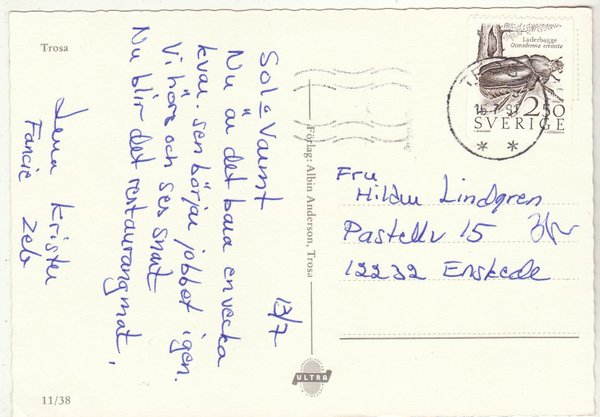 Trosa
13/7
Sol & Varmt
Nu är det bara en vecka
kvar. sen börjar jobbet igen.
Vi hörs och ses snart
Nu blir det restaurangmat,
Lena Krister
Fancie
Zeb
11/38
Förlag: Albin Anderson, Trosa
ULTRA
Läderbagge
Osmoderma eremita
2.50
SVERIGE
Fru
Hildur Lindgren
Pastellv 15
12232 Enskede